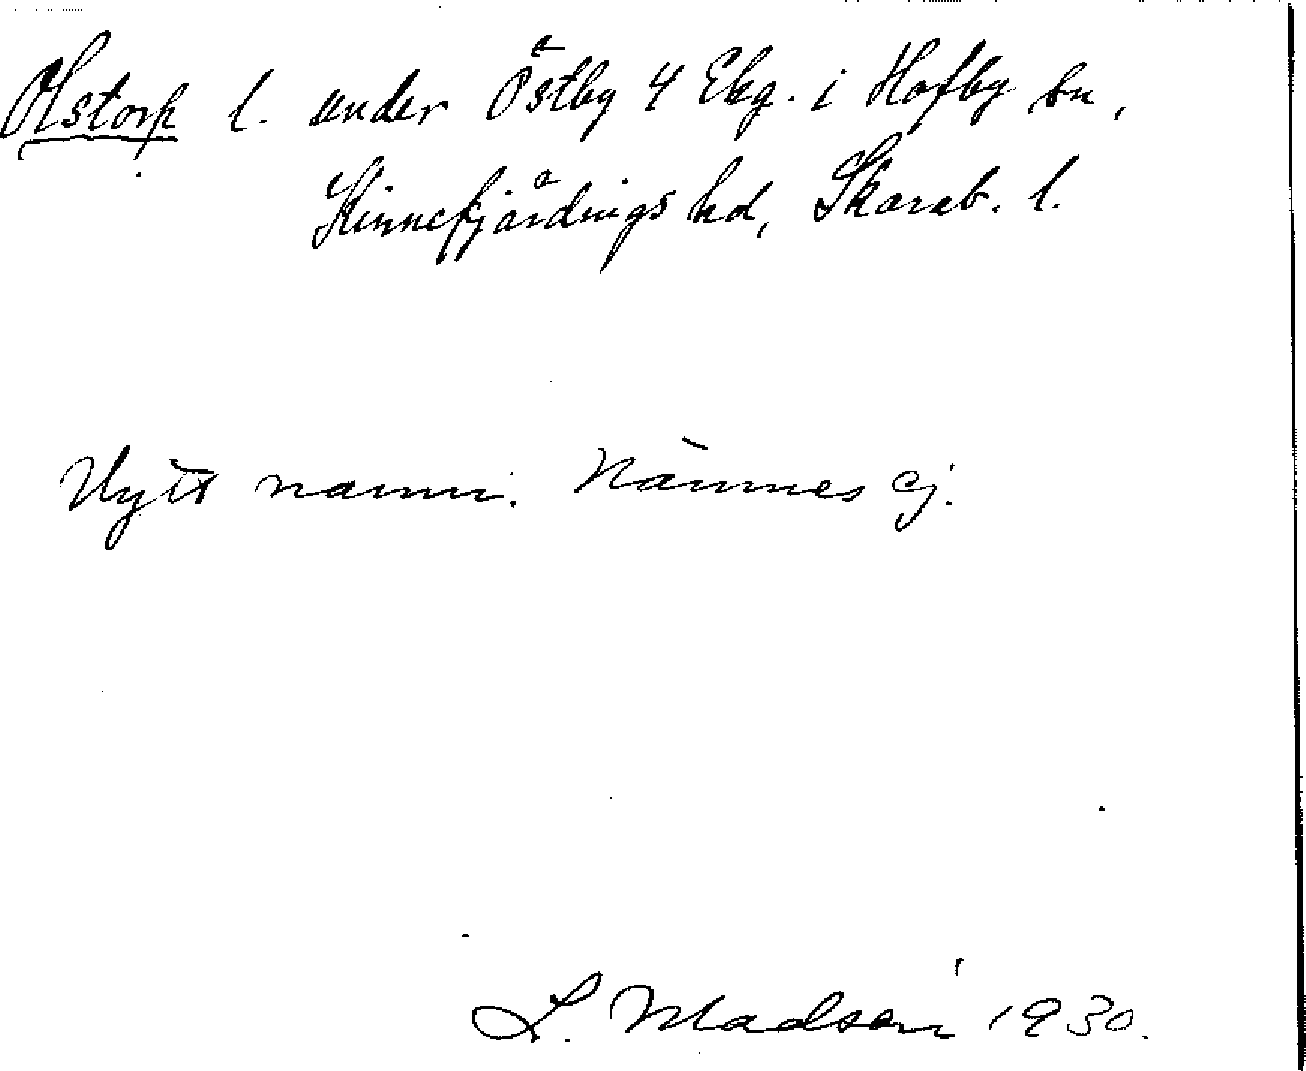 Olstorp l. under Östby 4 Ebg. i Hofby sn,
Kinnefjärdings hd, Skarab. l.
Nytt namn. Nämnes ej.
L. Madsen 1930.